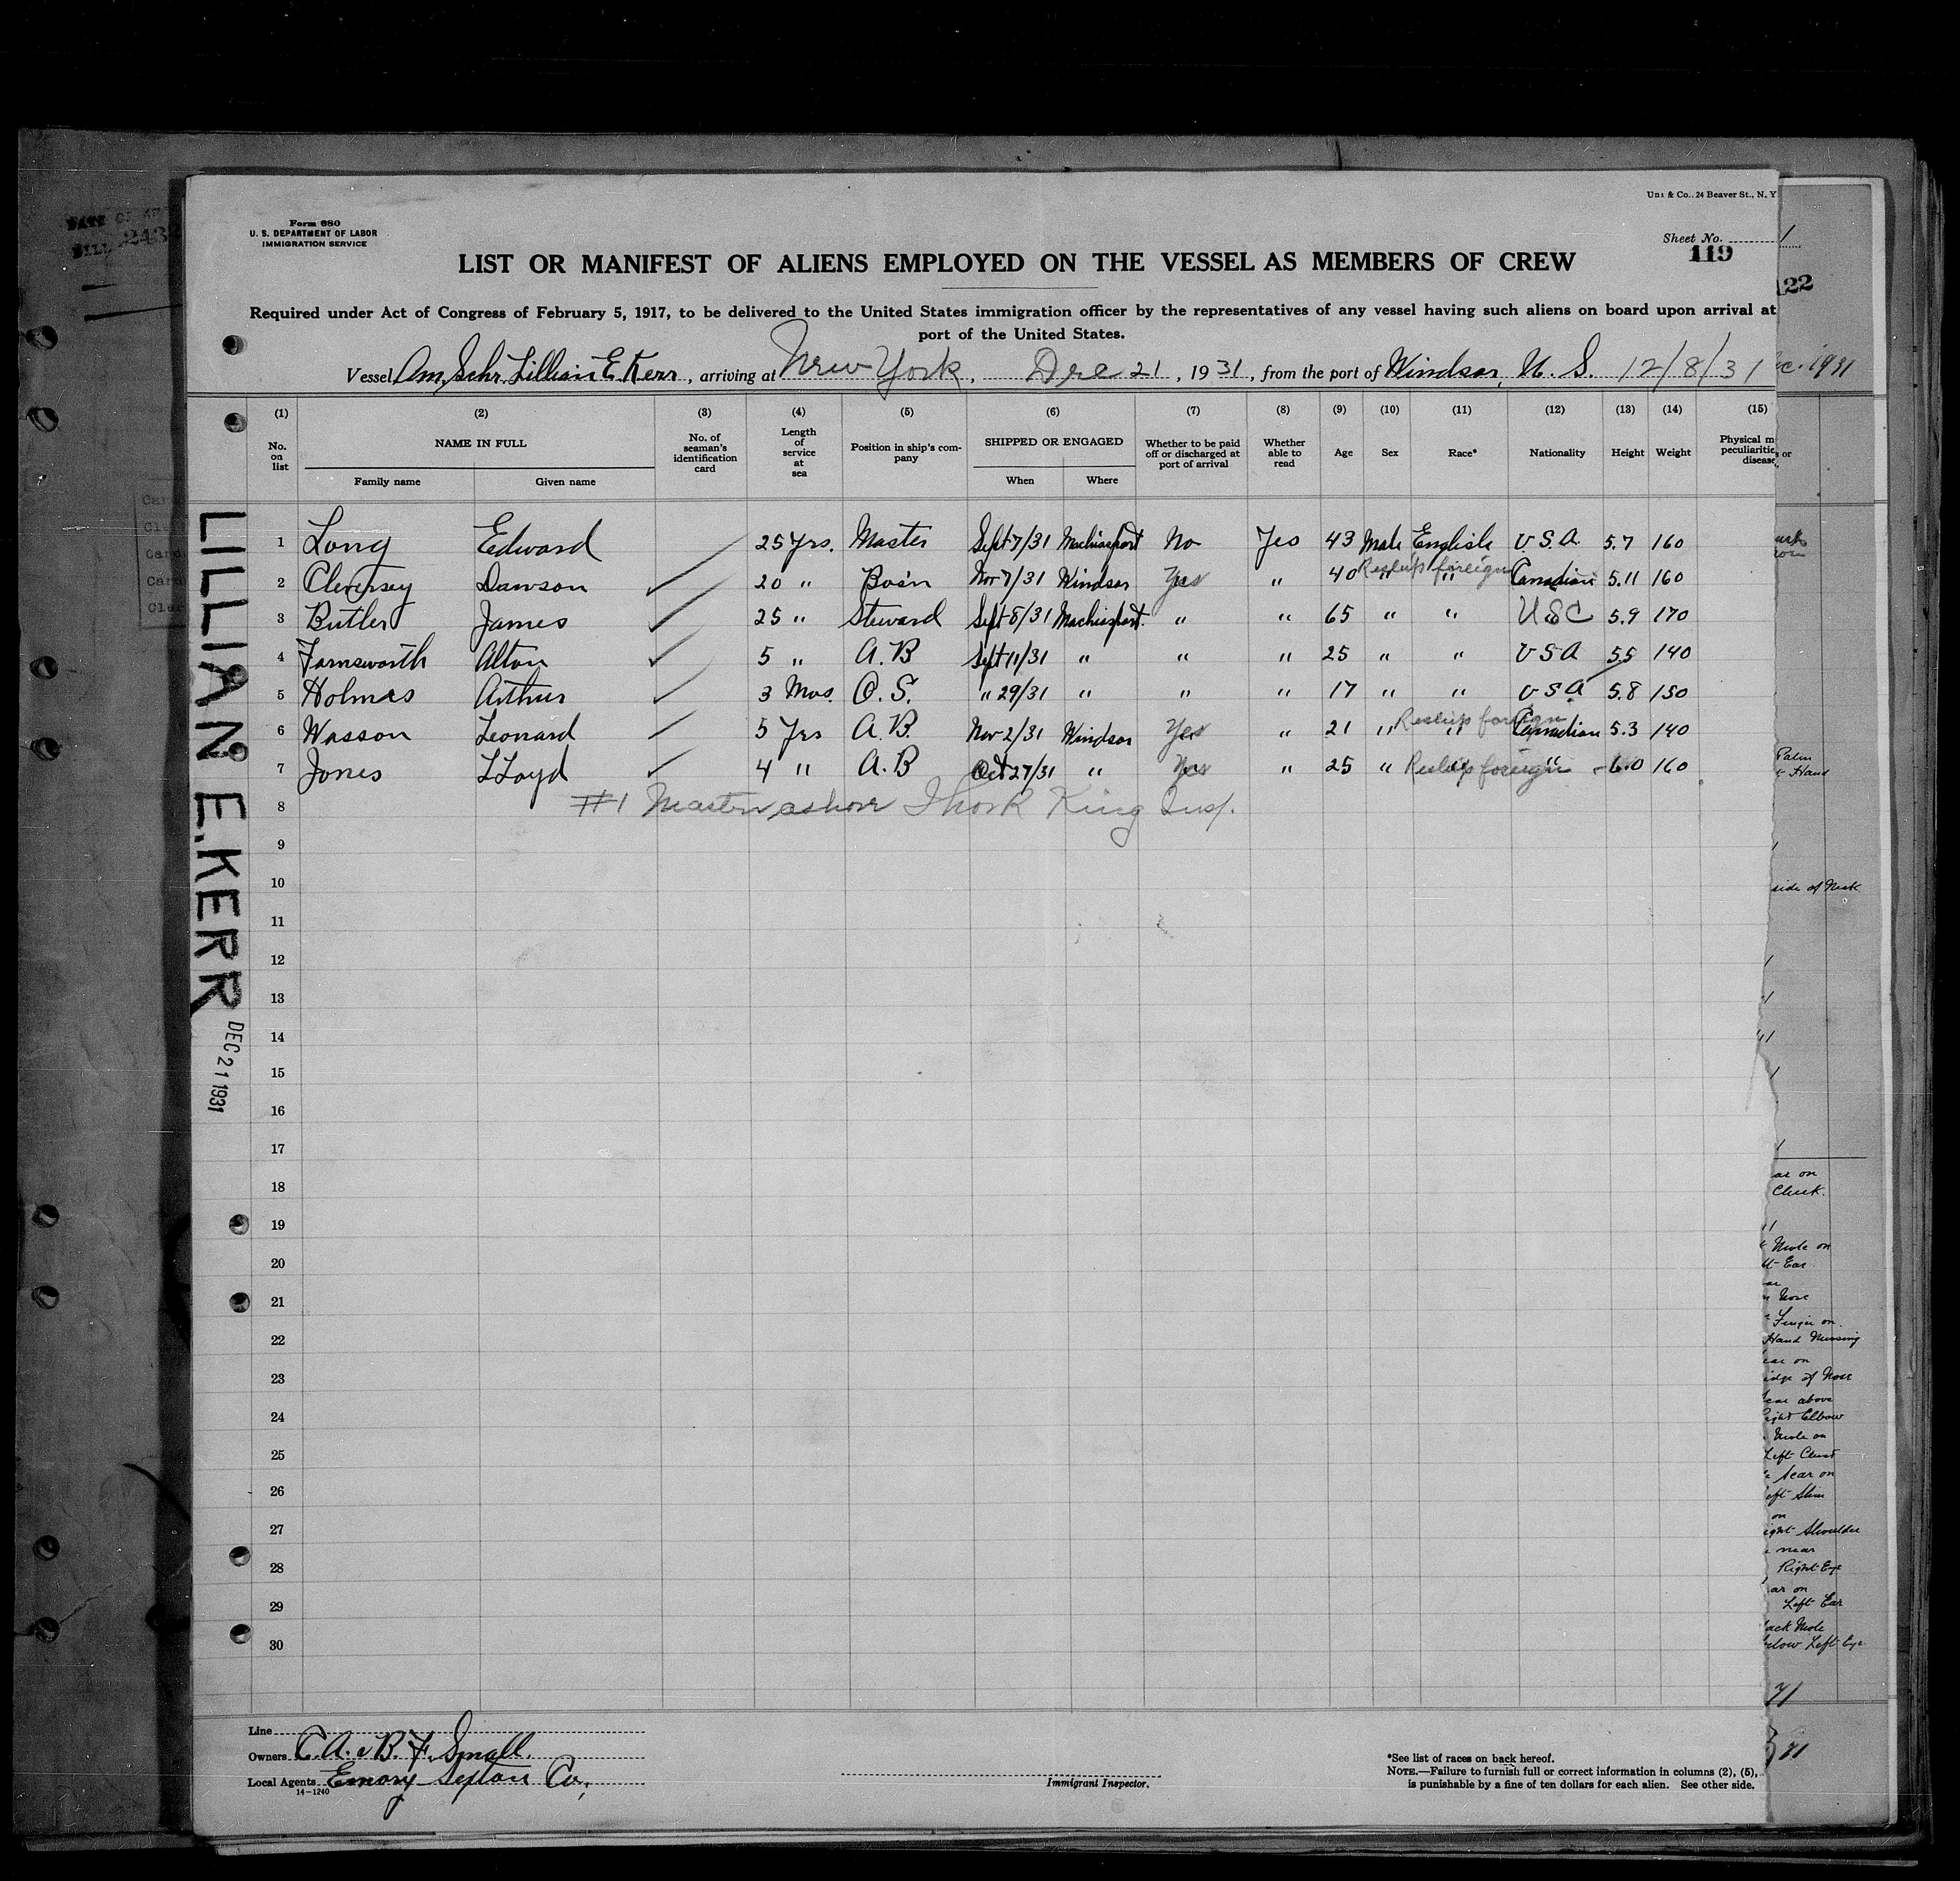 Form 680
U. S. DEPARTMENT OF LABOR
IMMIGRATION SERVICE
& Co., 24 Beaver St., N. Y
Sheet No.
119
LIST OR MANIFEST OF ALIENS EMPLOYED ON THE VESSEL AS MEMBERS OF CREW
Required under Act of Congress of February 5, 1917, to be delivered to the United States immigration officer by the representatives of any vessel having such aliens on board upon arrival at
port of the United States.
Vessel Am, Schr. Lillian E. Kerr, arriving at New York, Dec 21, 1931, from the port of Windsor, N. S. 12/8/31
(1) (2) (3) (4) (5) (6) (7) (8) (9) (10) (11) (12) (13) (14) (15)
No. on list NAME IN FULL Family name Given name No. of seaman's identification card Length of service at sea Position in ship's company SHIPPED OR ENGAGED When Where Whether to be paid off or discharged at port of arrival Whether able to read Age Sex Race* Nationality Height Weight Physical
1 Long Edward 25 Yrs. Master Sept 7/31 Machiasport No Yes 43 Male English U.S.A. 5.7 160
2 Dawson 20 " Bos'n Nov 7/31 Windsor Yes " 40 " Reship foreign " Canadian 5.11 160
3 Butler James 25 " Steward Sept 8/31 Machiasport. " " 65 " " USC 5.9 170
4 Farnsworth Alton 5 " A.B Sept 11/31 " " " 25 " " USA 5.5 140
5 Holmes Arthur 3 Mos. O.S. " 29/31 " " " 17 " " USA 5.8 150
6 Wasson Leonard 5 Yrs A.B. Nov 2/31 Windsor Yes " 21 " Reship foreign " Canadian 5.3 140
7 Jones LLoyd 4 " A.B Oct 27/31 " Yes " 25 " Reship foreign " 6.0 160
8 #1 Master ashore King Insp.
9
10
11
12
13
14
15
16
17
18
19
20
21
22
23
24
25
26
27
28
29
30
LILLIAN E. KERR
DEC 21 1931
Line
Owners C. A. & B. F. Small.
Local Agents Emory Sexton Co;
14-1240
Immigrant Inspector.
*See list of races on back hereof.
NOTE.—Failure to furnish full or correct information in columns (2), (5),
is punishable by a fine of ten dollars for each alien. See other side.
22
1931
Palm
Hand
side of Neck
on
Cheek.
Mole on
Ear
Nose
Finger on
Hand Missing
on
of Nose
above
Elbow
Mole on
Left Chest
Scar on
on
Shoulder
near
Right Eye
on
Left Ear
Mole
Left Eye